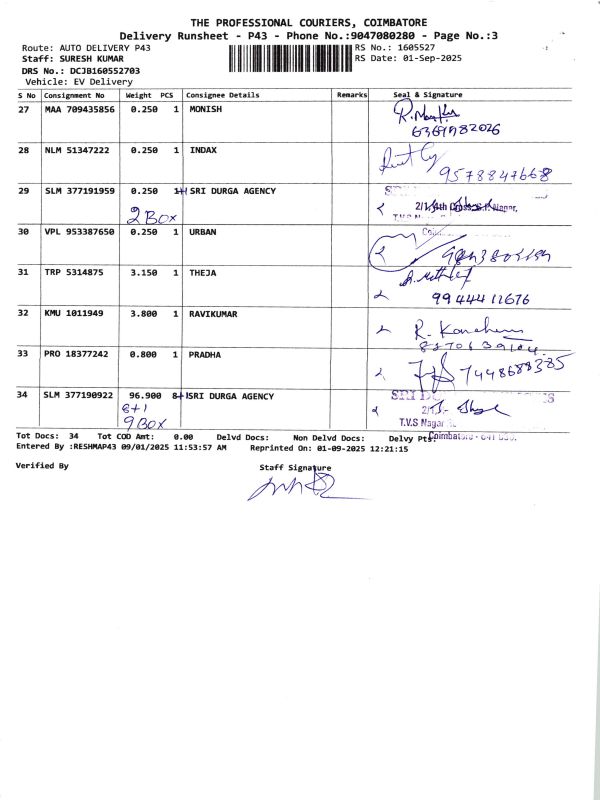 THE PROFESSIONAL COURIERS, COIMBATORE
Delivery Runsheet - P43 - Phone No.:9047080280 - Page No.:3
Route: AUTO DELIVERY P43 RS No.: 1605527
Staff: SURESH KUMAR RS Date: 01-Sep-2025
DRS No.: DCJB160552703
Vehicle: EV Delivery
S No Consignment No Weight PCS Consignee Details Remarks Seal & Signature
27 MAA 709435856 0.250 1 MONISH
28 NLM 51347222 0.250 1 INDAX
9578847668
29 SLM 377191959 0.250 1+1 SRI DURGA AGENCY
2 Box
30 VPL 953387650 0.250 1 URBAN
31 TRP 5314875 3.150 1 THEJA
99444 11676
32 KMU 1011949 3.800 1 RAVIKUMAR
R.
33 PRO 18377242 0.800 1 PRADHA
7448688385
34 SLM 377190922 96.900 8+1 SRI DURGA AGENCY SRI
8+1
9 Box T.V.S Nagar
Tot Docs: 34 Tot COD Amt: 0.00 Delvd Docs: Non Delvd Docs: Delvy Pts: Coimbatore
Entered By :RESHMAP43 09/01/2025 11:53:57 AM Reprinted On: 01-09-2025 12:21:15
Verified By Staff Signature